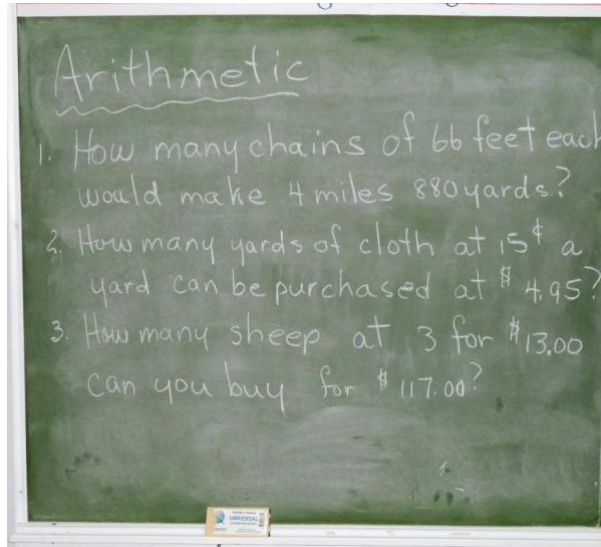 Arithmetic
1. How many chains of 66 feet each
would make 4 miles 880 yards?
2. How many yards of cloth at 15¢ a
yard can be purchased at $4.95?
3. How many sheep at 3 for $13.00
can you buy for $117.00?
UNIVERSAL